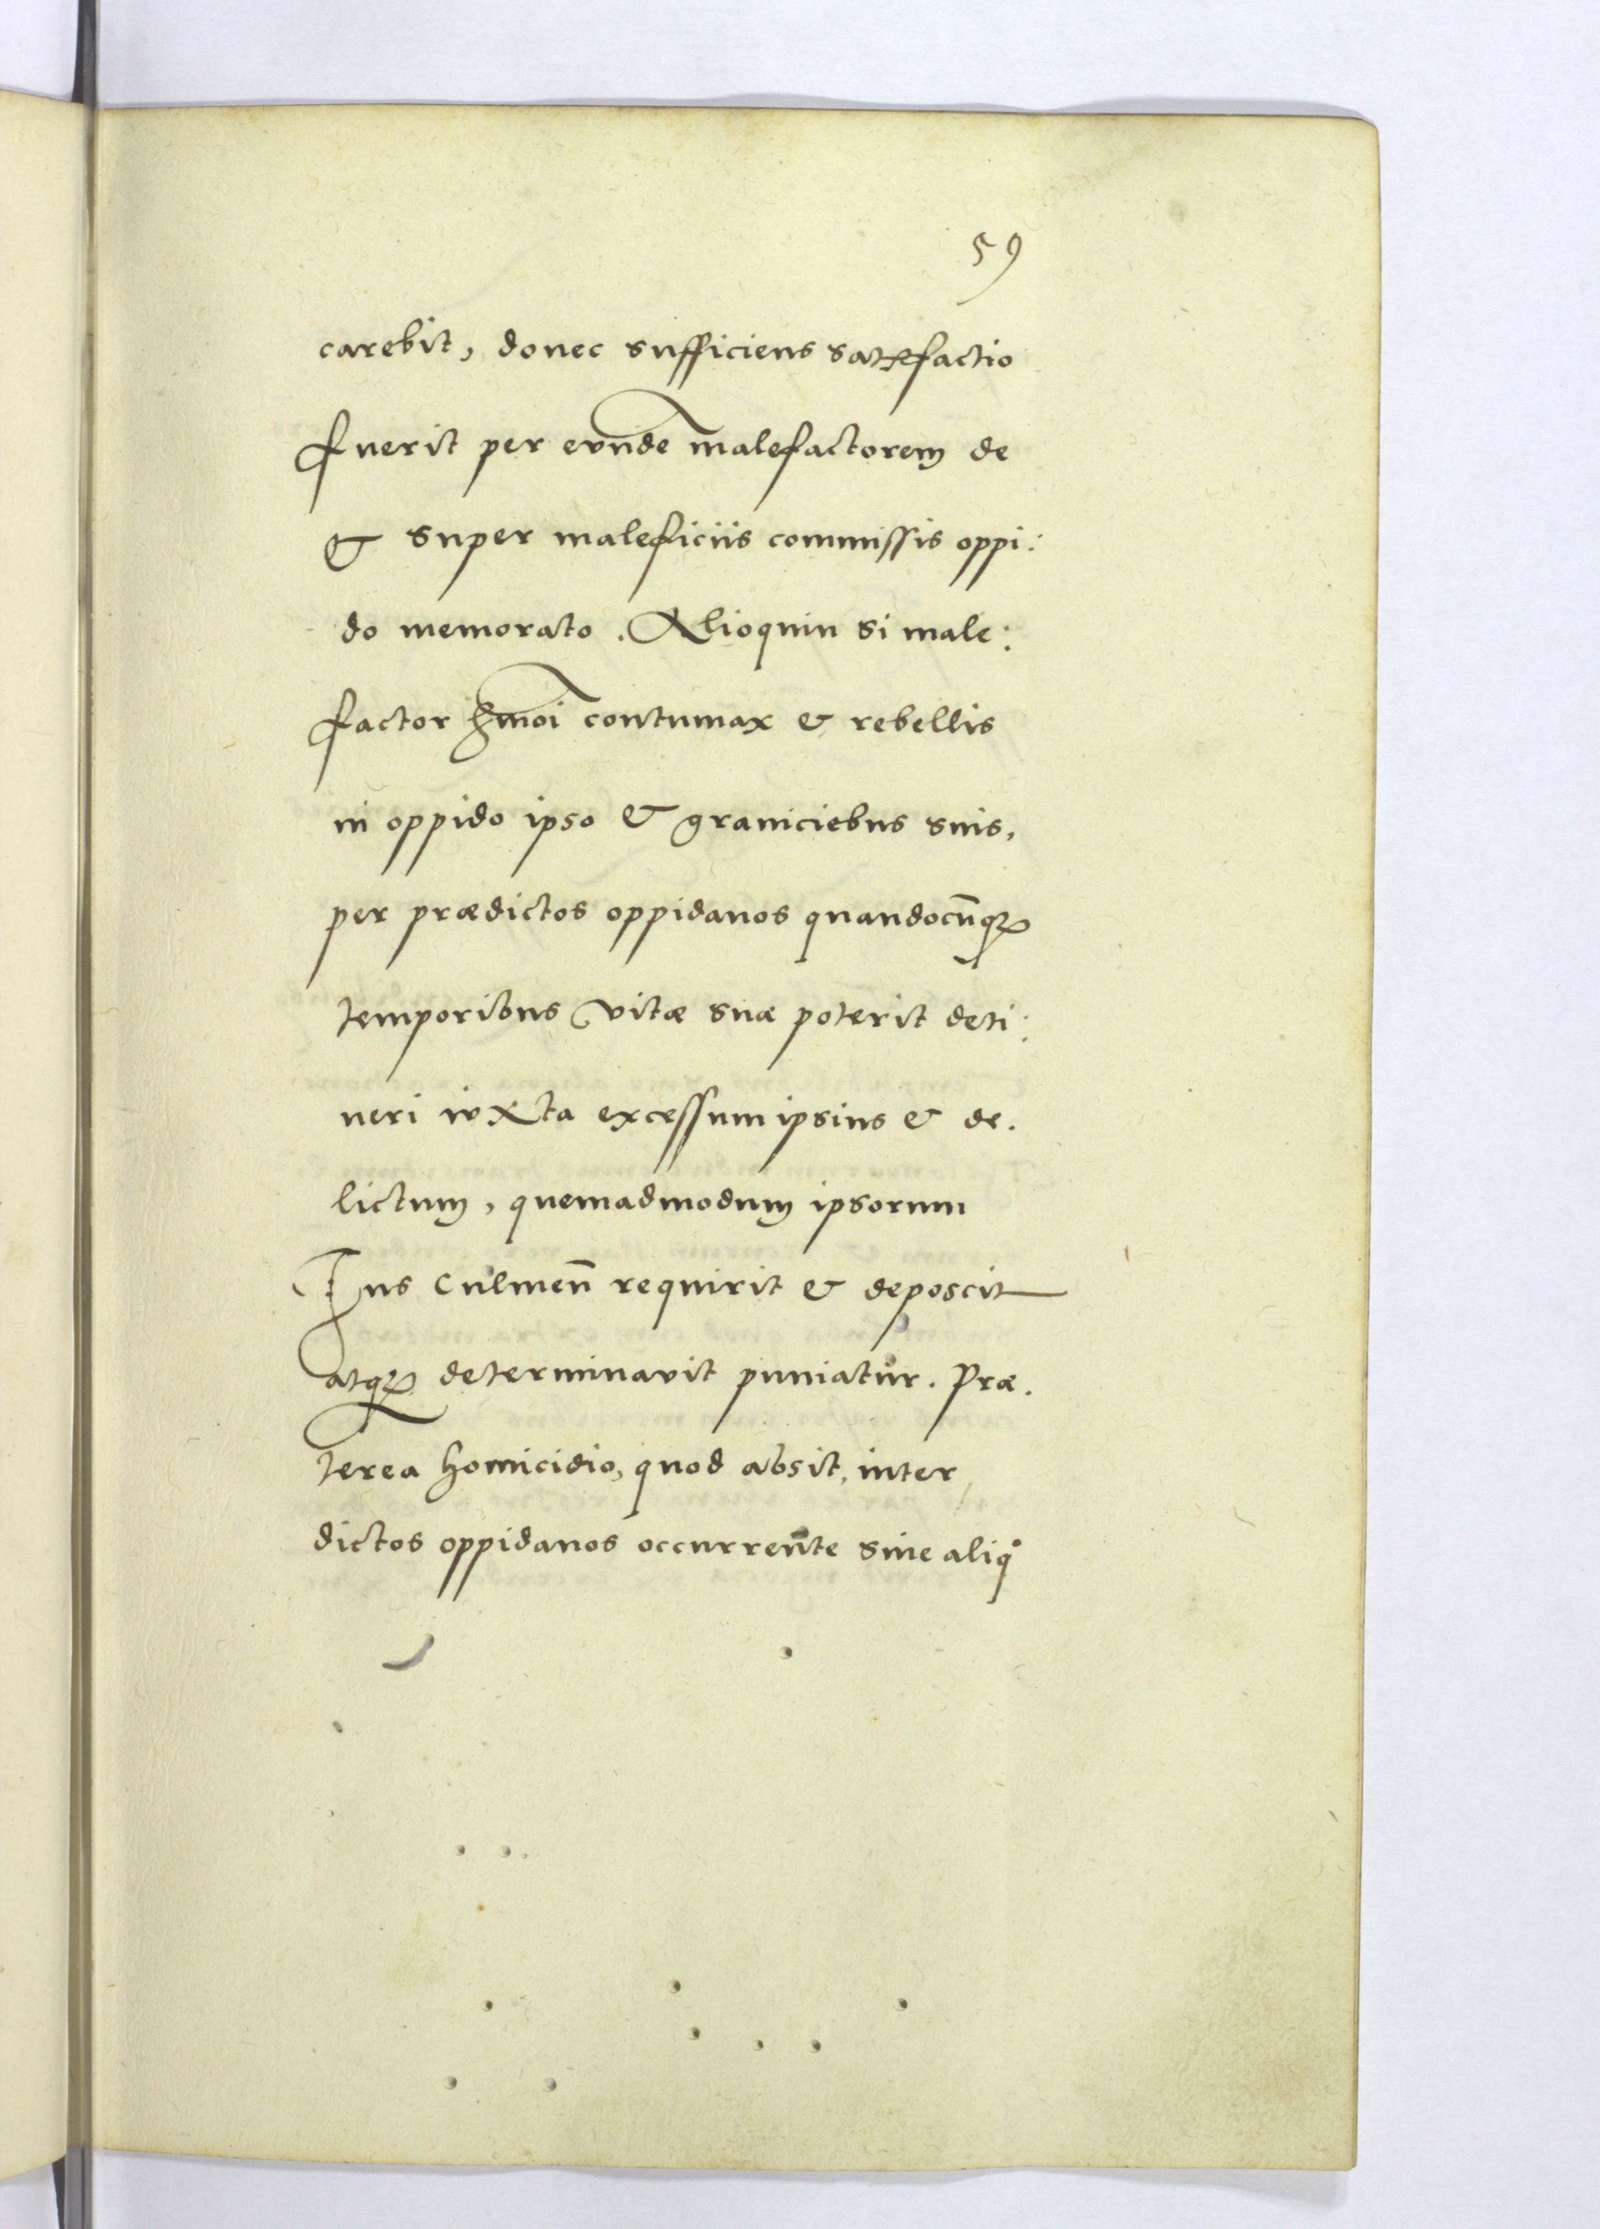 59
carebit, donec sufficiens satisfactio
fuerit per eunde͂ malefactorem de
& super maleficiis commissis oppi:
do memorato. Alioquin si male:
factor hmo͂i contumax & rebellis
in oppido ipso & graniciebus suis,
per prædictos oppidanos quandocu͂qꝫ
temporibus vitæ suæ poterit deti:
neri iuxta excessum ipsius & de.
lictum, quemadmodum ipsorum
Ius Culmen̄ requirit & deposcit
atqꝫ determinavit puniatur. Præ.
terea homicidio, quod absit, inter
dictos oppidanos occurrente sine aliqº